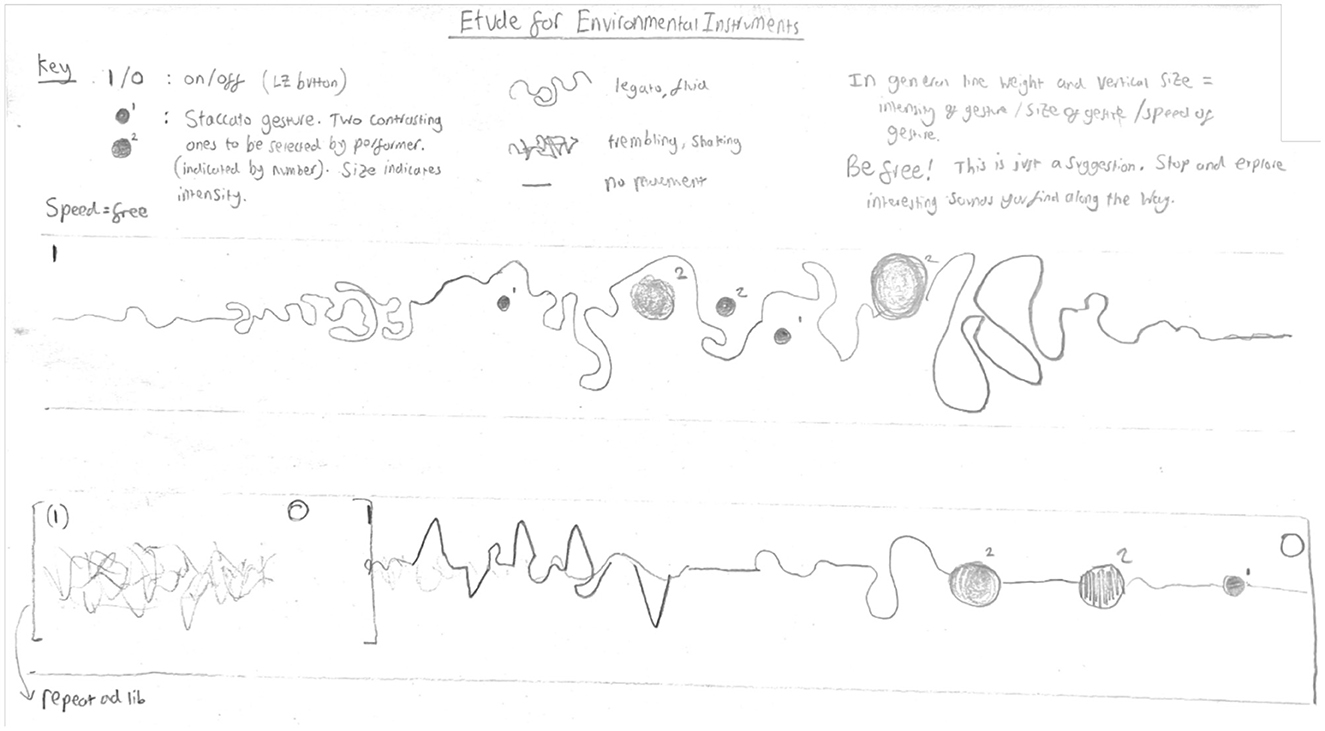 Etude for Environmental Instruments
Key
1/0 : on/off (LZ button)
1
: Staccato gesture. Two contrasting
2
ones to be selected by performer.
(indicated by number). Size indicates
intensity.
legato, fluid
trembling, shaking
no movement
In general line weight and vertical size =
intensity of gesture / size of gesture / speed of
gesture.
Be free! This is just a suggestion. Stop and explore
interesting sounds you find along the way.
Speed = free
1
1
2
2
1
2
(1)
0
1
2
2
1
0
repeat ad lib